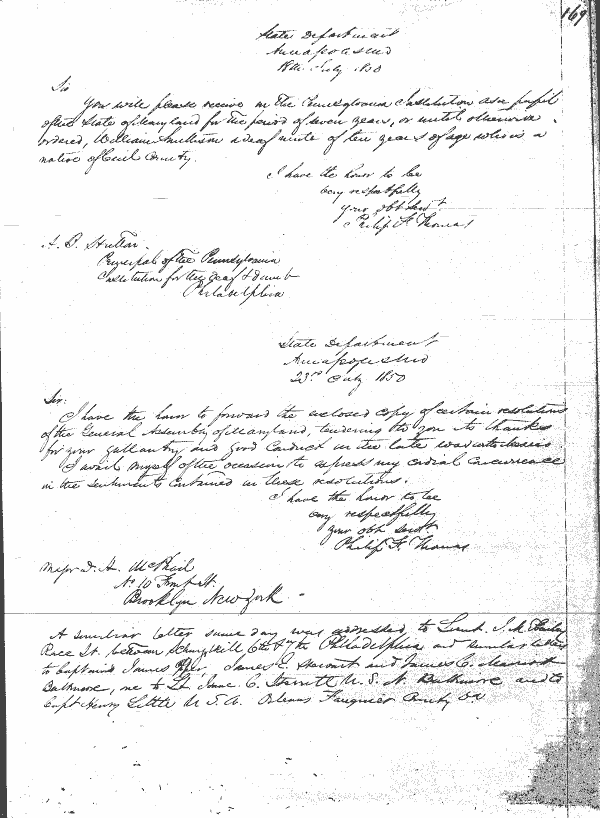 169
State Department
Annapolis Md
18th July 1850
Sir
You will please receive in the Pennsylvania Institution as a pupil
of the State of Maryland for the period of seven years, or until otherwise
ordered, William a deaf mute of ten years of age who is a
native of Cecil County.
I have the honor to be
very respectfully
your obt servt
Philip F. Thomas
A. B. Hutton.
Principal of the Pennsylvania
Institution for the deaf & dumb
Philadelphia
State Department
Annapolis Md
23rd July 1850
Sir:
I have the honor to forward the enclosed copy of certain resolutions
of the General Assembly of Maryland, tendering to you its thanks
for your gallantry and good conduct in the late war with Mexico
I avail myself of the occasion to express my cordial concurrence
in the sentiments contained in these resolutions.
I have the honor to be
very respectfully
your obt servt
Philip F. Thomas
Major D. H. McPhail
No 10 Front St.
Brooklyn New York
A similar letter same day was addressed to Lieut. J. M.
Race St. between Schuylkill 6th & 7th Philadelphia and similar letters
to Captains James James E. Stewart and James C.
Baltimore, one to Lt Isaac C. Sterrett U. S. N. Baltimore and to
Capt Henry Little U. S. A. Orleans Fauquier County Va